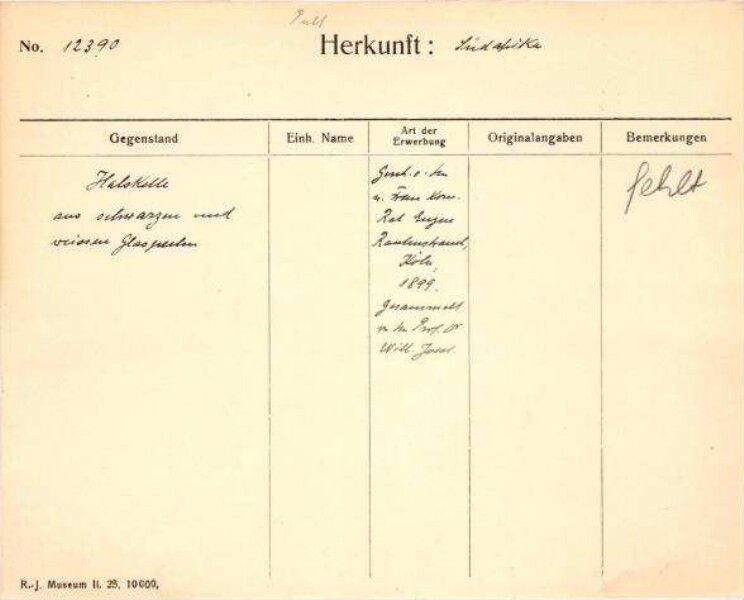 No. 12390 Herkunft: Südafrika
Gegenstand Einh. Name Art der Erwerbung Originalangaben Bemerkungen
Halskette
aus schwarzen und
weissen Glasperlen
Gesch. v. Hn
u. Frau Kom.
Rat Eugen
Rautenstrauch,
Köln,
1899.
Gesammelt
v. Hn Prof. Dr
Wilh. Joest.
fehlt
R.-J. Museum II. 25, 10000,